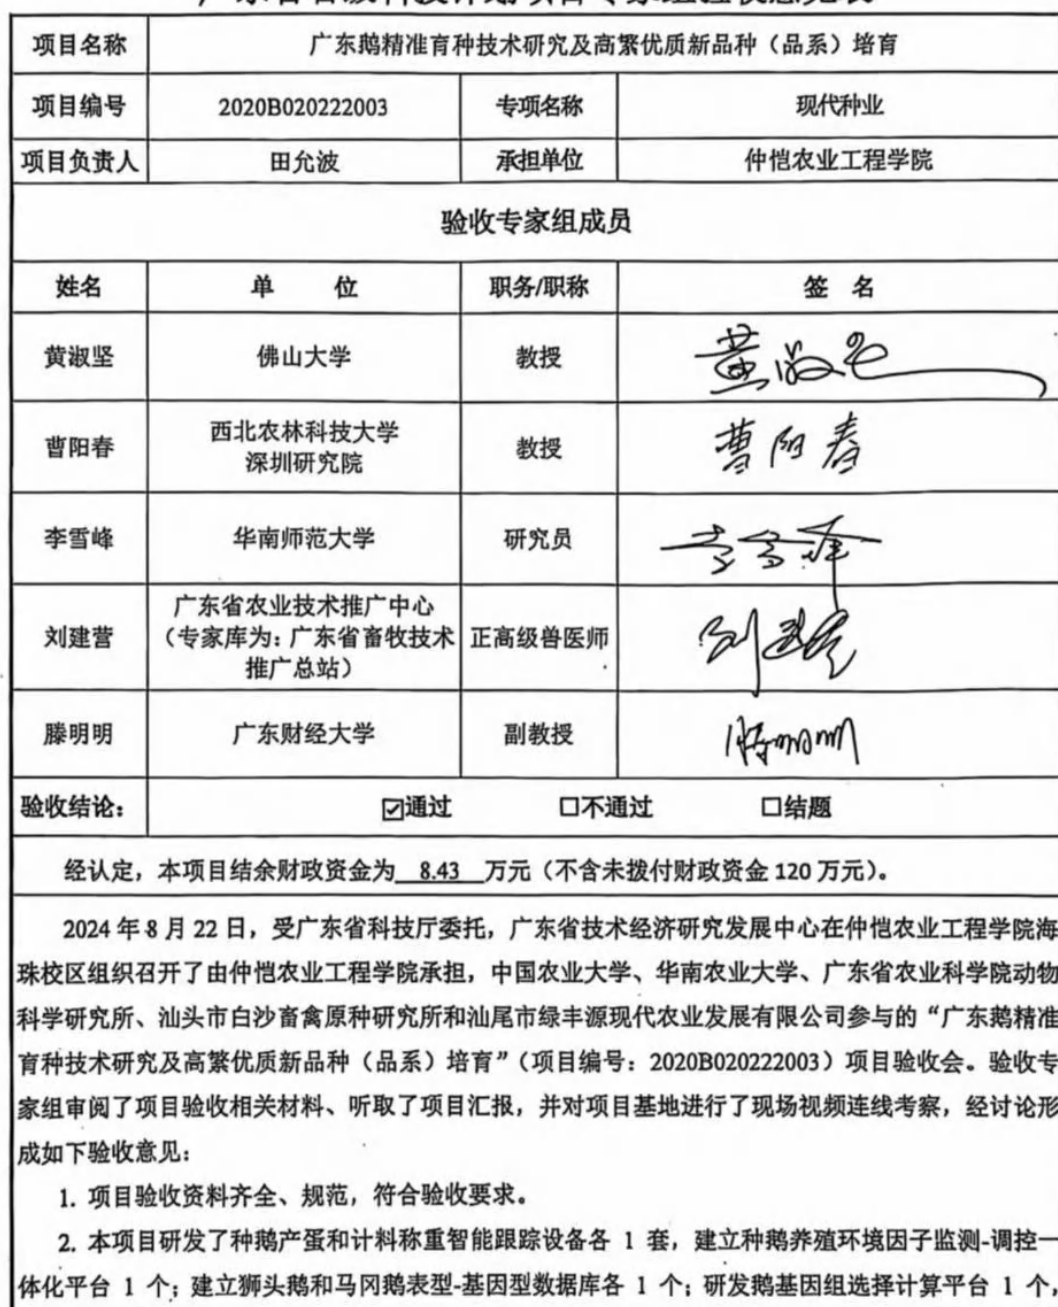 项目名称 广东鹅精准育种技术研究及高繁优质新品种（品系）培育
项目编号 2020B020222003 专项名称 现代种业
项目负责人 田允波 承担单位 仲恺农业工程学院
验收专家组成员
姓名 单 位 职务/职称 签 名
黄淑坚 佛山大学 教授 黄淑坚
曹阳春 西北农林科技大学 深圳研究院 教授 曹阳春
李雪峰 华南师范大学 研究员 李雪峰
刘建营 广东省农业技术推广中心 （专家库为：广东省畜牧技术 推广总站） 正高级兽医师 刘建营
滕明明 广东财经大学 副教授 滕明明
验收结论： ☑通过 ☐不通过 ☐结题
经认定，本项目结余财政资金为 8.43 万元（不含未拨付财政资金 120 万元）。
2024 年 8 月 22 日，受广东省科技厅委托，广东省技术经济研究发展中心在仲恺农业工程学院海
珠校区组织召开了由仲恺农业工程学院承担，中国农业大学、华南农业大学、广东省农业科学院动物
科学研究所、汕头市白沙畜禽原种研究所和汕尾市绿丰源现代农业发展有限公司参与的“广东鹅精准
育种技术研究及高繁优质新品种（品系）培育”（项目编号：2020B020222003）项目验收会。验收专
家组审阅了项目验收相关材料、听取了项目汇报，并对项目基地进行了现场视频连线考察，经讨论形
成如下验收意见：
1. 项目验收资料齐全、规范，符合验收要求。
2. 本项目研发了种鹅产蛋和计料称重智能跟踪设备各 1 套，建立种鹅养殖环境因子监测-调控一
体化平台 1 个；建立狮头鹅和马冈鹅表型-基因型数据库各 1 个；研发鹅基因组选择计算平台 1 个，